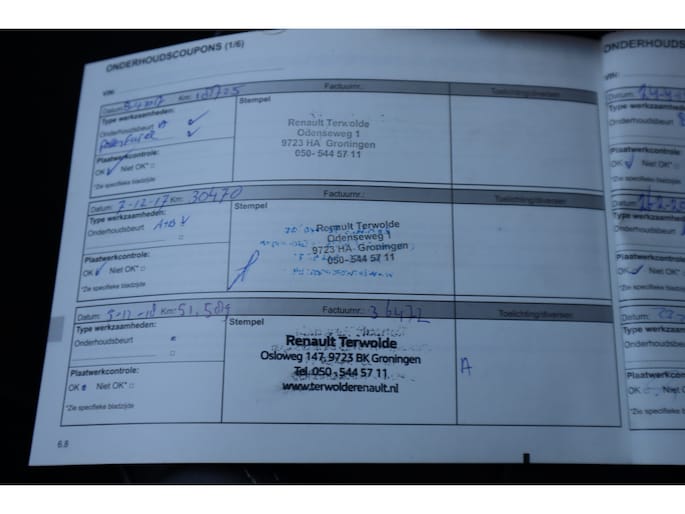 ONDERHOUDSCOUPONS (1/6)
VIN:
Datum: Km: Factuurnr.: Toelichting/diversen
Type werkzaamheden:
Onderhoudsbeurt
Stempel
Renault Terwolde
Odenseweg 1
9723 HA Groningen
050-544 57 11
Plaatwerkcontrole:
OK Niet OK*
*Zie specifieke bladzijde
Datum: 7-12-17 Km: 30470 Factuurnr.: Toelichting/diversen
Type werkzaamheden:
Onderhoudsbeurt A+B
Stempel
Renault Terwolde
Odenseweg 1
9723 HA Groningen
050-544 57 11
Plaatwerkcontrole:
OK Niet OK*
*Zie specifieke bladzijde
Datum: Km: 51.589 Factuurnr.: 36472 Toelichting/diversen
Type werkzaamheden:
Onderhoudsbeurt
Stempel
Renault Terwolde
Osloweg 147, 9723 BK Groningen
Tel. 050 - 544 57 11
www.terwolderenault.nl
A
Plaatwerkcontrole:
OK Niet OK*
*Zie specifieke bladzijde
6.8
ONDERHOUDS
VIN:
Datum:
Type werkzaam
Onderhoudsbeu
Plaatwerkcontrole
OK Niet OK*
*Zie specifieke bladz
Datum:
Type werkzaam
Onderhoudsbeu
Plaatwerkcontro
OK Niet OK*
*Zie specifieke blad
Datum:
Type werkzaam
Onderhoudsbeu
Plaatwerkcon
OK Niet OK
*Zie specifieke